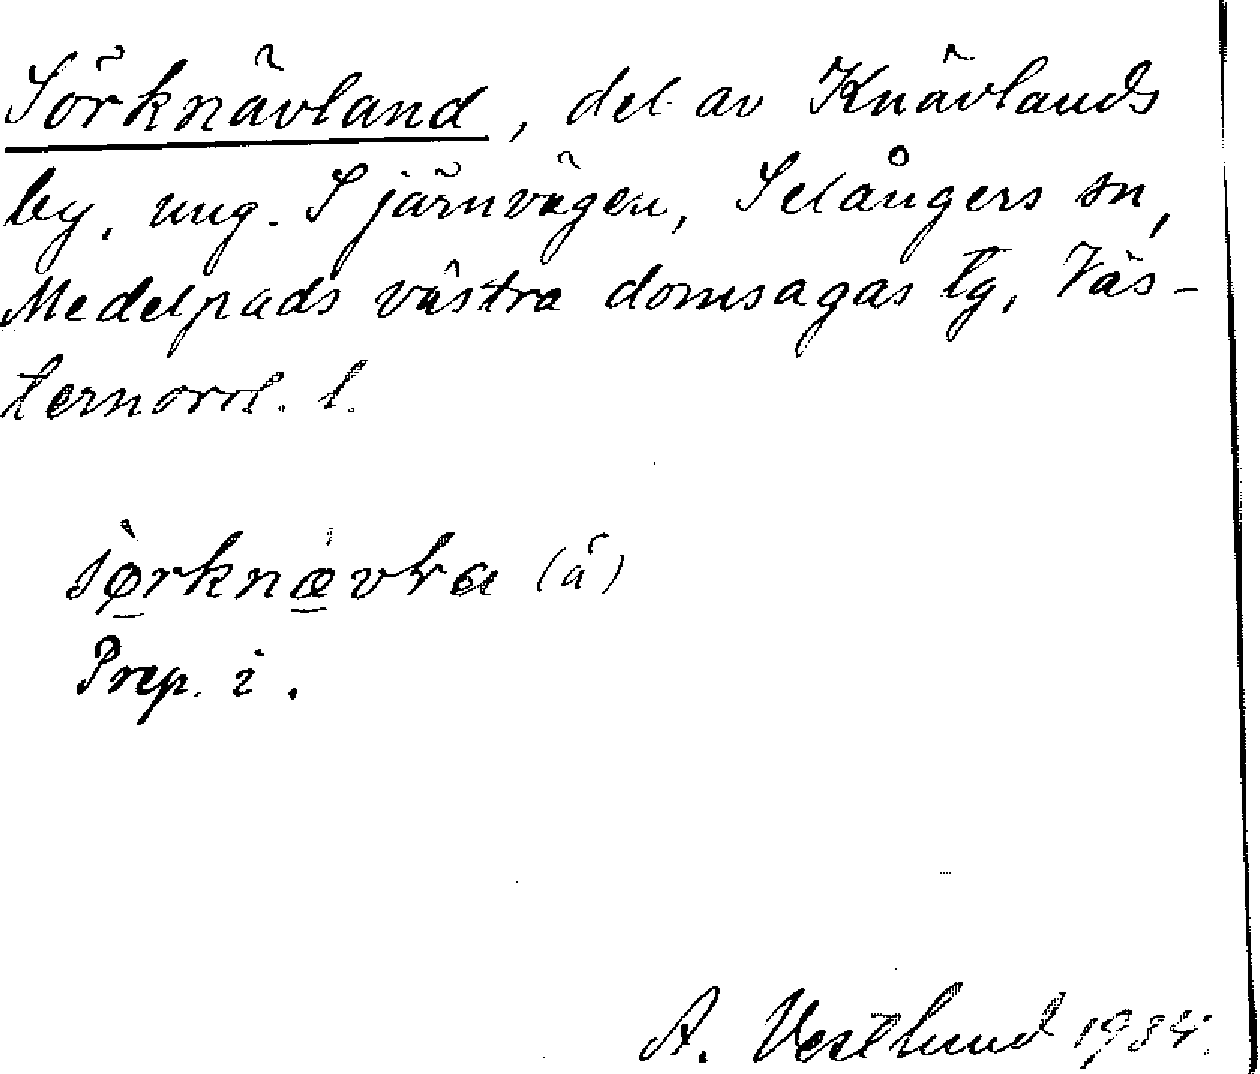 Sörknävland, del av Knävlands
by, ung. S järnvägen, Selångers sn,
Medelpads västra domsagas tg, Väs-
ternorrl. l.
sø̀rknævla (ä)
Prep. i.
A. Vestlund 1934.